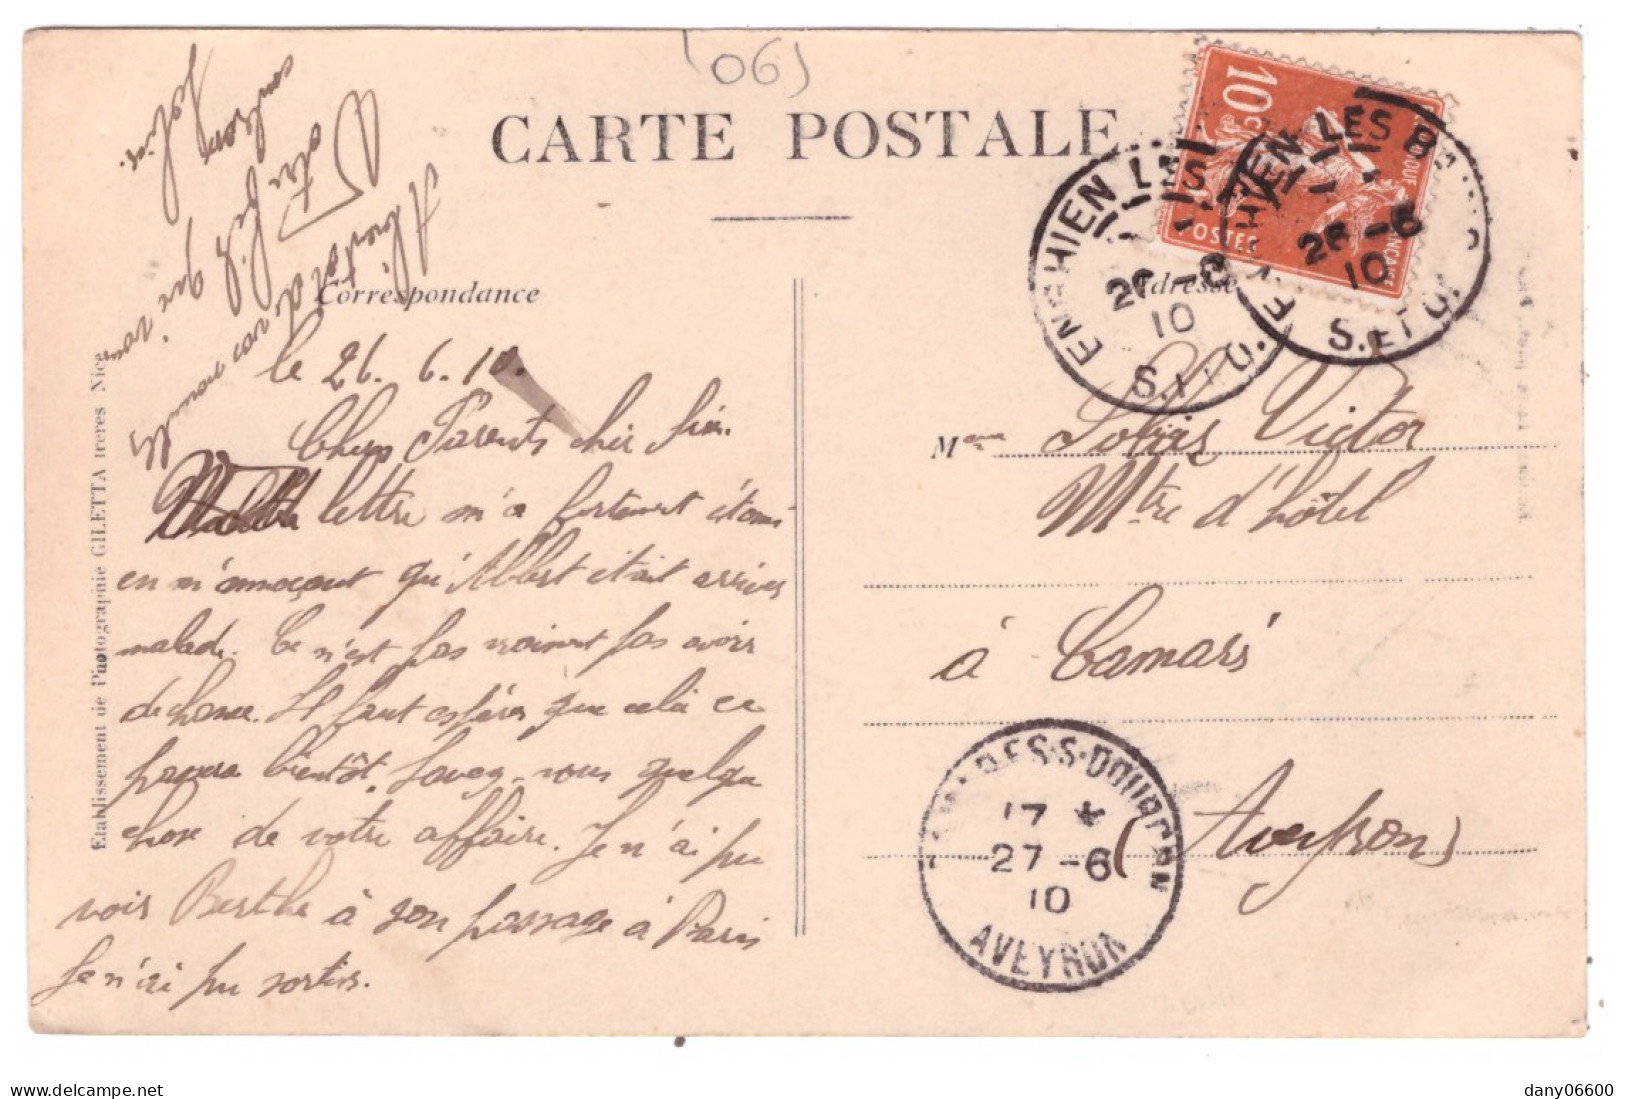 (06)
CARTE POSTALE
Correspondance
Adresse
le 26. 6. 10.
Chers Parents cher
lettre m'a fortement étonné
en m'annoçant qu'Albert était arrivés
malade. Ce n'est pas vraiment pas avoir
de chance. Il faut espérer que celà ce
passera bientôt. Savez-vous quelque
chose de votre affaire. Je n'ai pu
voir Berthe à son passage à Paris
Je n'ai pu sortir.
A bientôt de
vos nouvelles
que vous
Votre fils
Mme Victor
Mtre d'hôtel
à Camarès
(Aveyron)
10c
POSTES
ENGHIEN LES
26 -6
10
S. ET O.
ENGHIEN LES B
26 -6
10
S. ET O.
S-DOURDON
17 *
27 -6
10
AVEYRON
Etablissement de Photographie GILETTA frères Nice
dany06600